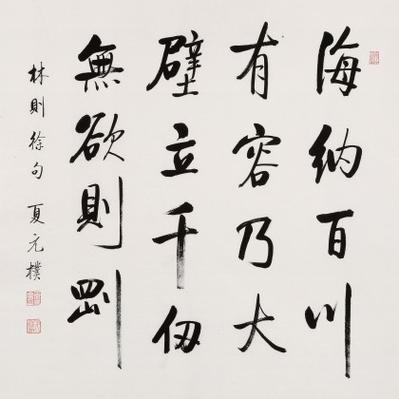 海納百川
有容乃大
壁立千仞
無欲則剛
林則徐句 夏元樸